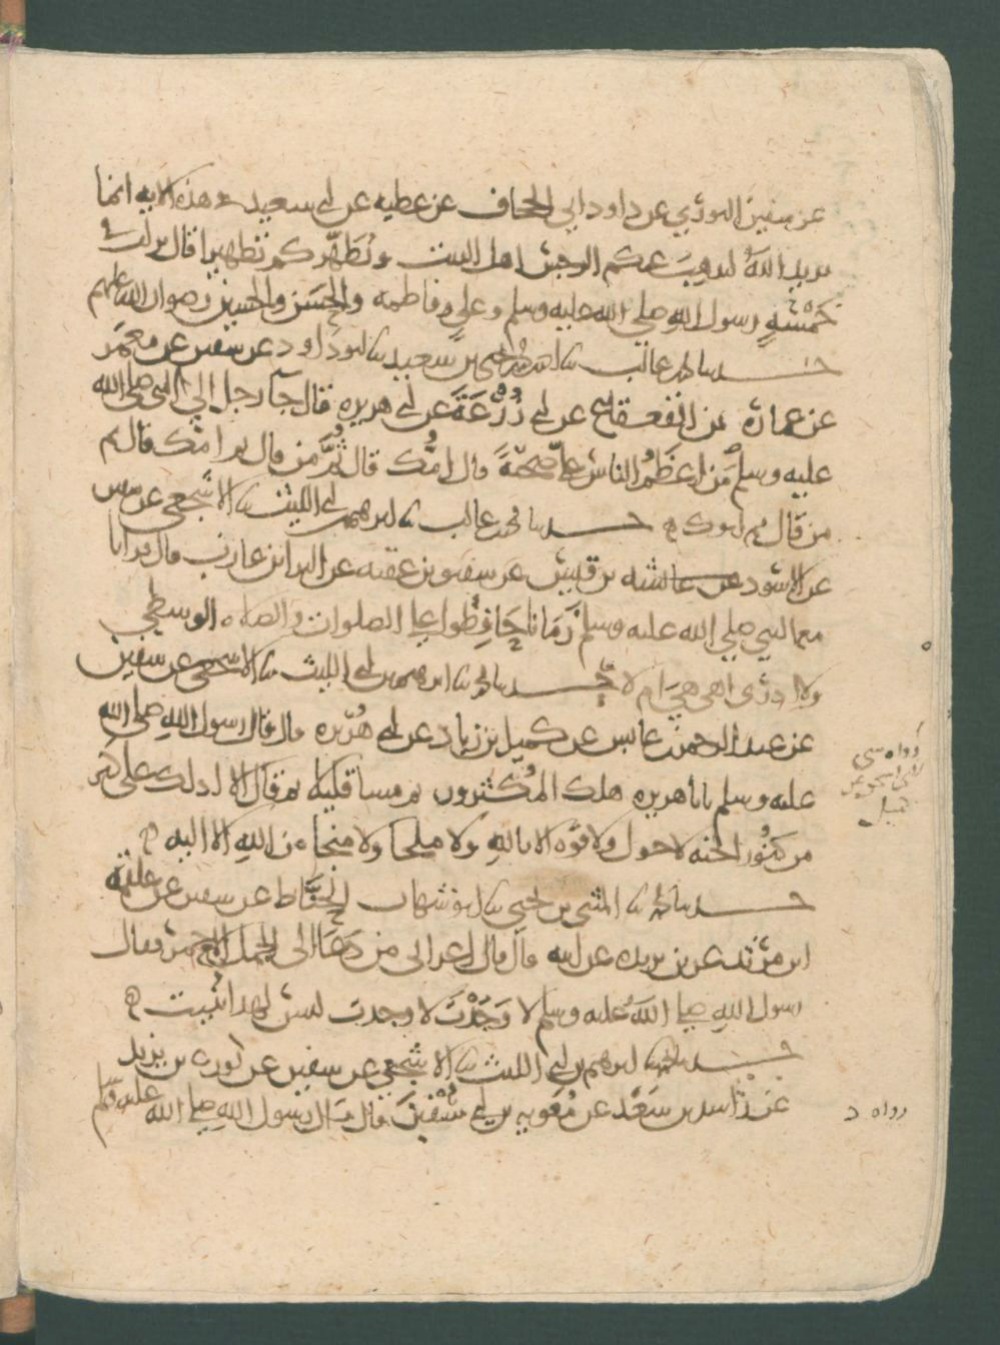 عن سفين الثوري عن داود ابي الجحاف عن عطيه عن ابي سعيد في هذه الايه انما
يريد الله ليذهب عنكم الرجس اهل البيت ويُطَهِّركم تطهيرا قال نزلت في
خَمْسَةٍ رسول الله صلي الله عليه وسلم وعلي وفاطمه والحَسَن والحسين رضوان الله عليهم
حــــدثنا محمد بن غالب ثنا يحيى بن سعيد ثنا ابو داود عن سفين عن معمر
عن عماره بن القعقاع عن ابي زُرْعَةَ عن ابي هريره قال جآ رجل الي النبي صلى الله
عليه وسلم مَن اعظَمُ الناس عليّ صُحبَةً قال امُّك قال ثُمَّ من قال ثم امك قال ثم
من قال ثم ابوك ه حــــدثنا محمد بن غالب ثنا ابرهيم بن ابي الليث ثنا الاشجعي عن سفين
عن الاسود بن قيس عن شقيق بن عقبه عن البرا بن عازب قال قرانا
مع النبي صلي الله عليه وسلم زَمَانا حَافِظُوا علي الصلوات والصلاه الوسطي
ولا ادري اهي هي ام لا حــــدثنا محمد ثنا ابرهيم بن ابي الليث ثنا الاشجعي عن سفين
عن عبد الرحمن بن عابس عن كميل بن زياد عن ابي هُرَيره قال قال رسول الله صلى الله
عليه وسلم يابا هريره هلك المُكْثرون ثم مشا قليلا ثم قال الا ادلك على كنز
من كنُوز الجنه لا حول ولا قوه الا بالله ولا ملجا ولا منجا من الله الا اليه ه
حــــدثنا محمد ثنا المثني بن يحيى ثنا ابو شهاب الحَنَّاط عن سفين عن علقمه
ابن مَرْثد عن بن بريده عن ابيه قال قال اعرابي من دَعَا الى الجمل الاحمر فقال
رسول الله صلي اللهُ عليه وسلم لا وَجَدْتَ لا وجدت ليس لهذا بُنيت ه
حــــدثنا محمد ثنا ابرهيم بن ابي الليث ثنا الاشجعي عن سفين عن ثور بن يزيد
عن راشد بن سَعْد عن مُعَويه بن ابي سُفْينَ قال قال رسول الله صلي الله عليه وسلم
رواه سي
رواه د